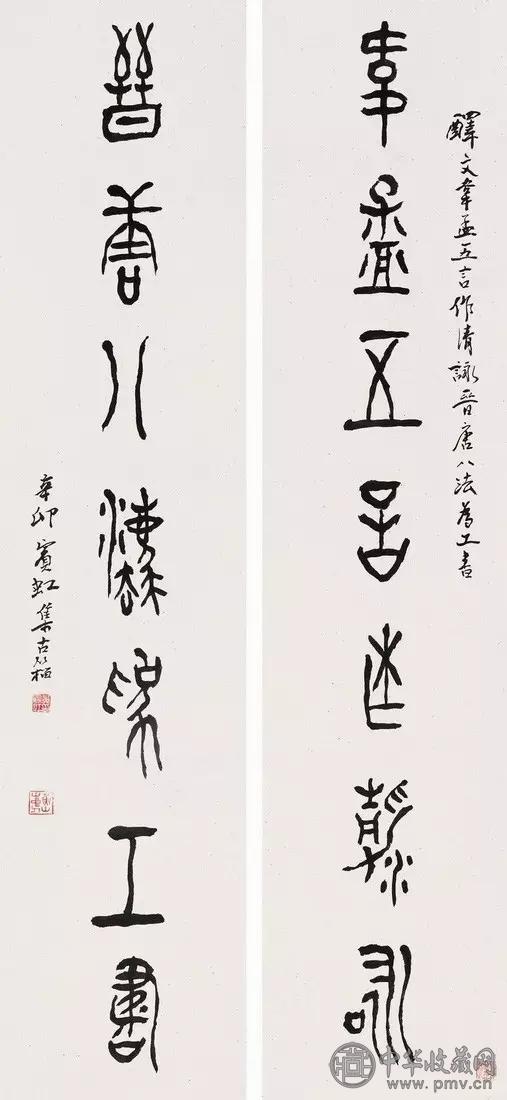 釋文韋孟五言作清詠晉唐八法為工書
韋孟五言作清詠
晉唐八法為工書
辛卯賓虹集古籀
中华收藏网
www.pmv.cn